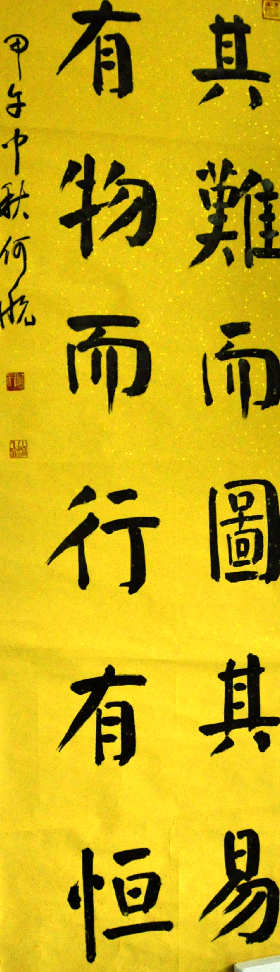 其難而圖其易
有物而行有恒
甲午中秋何